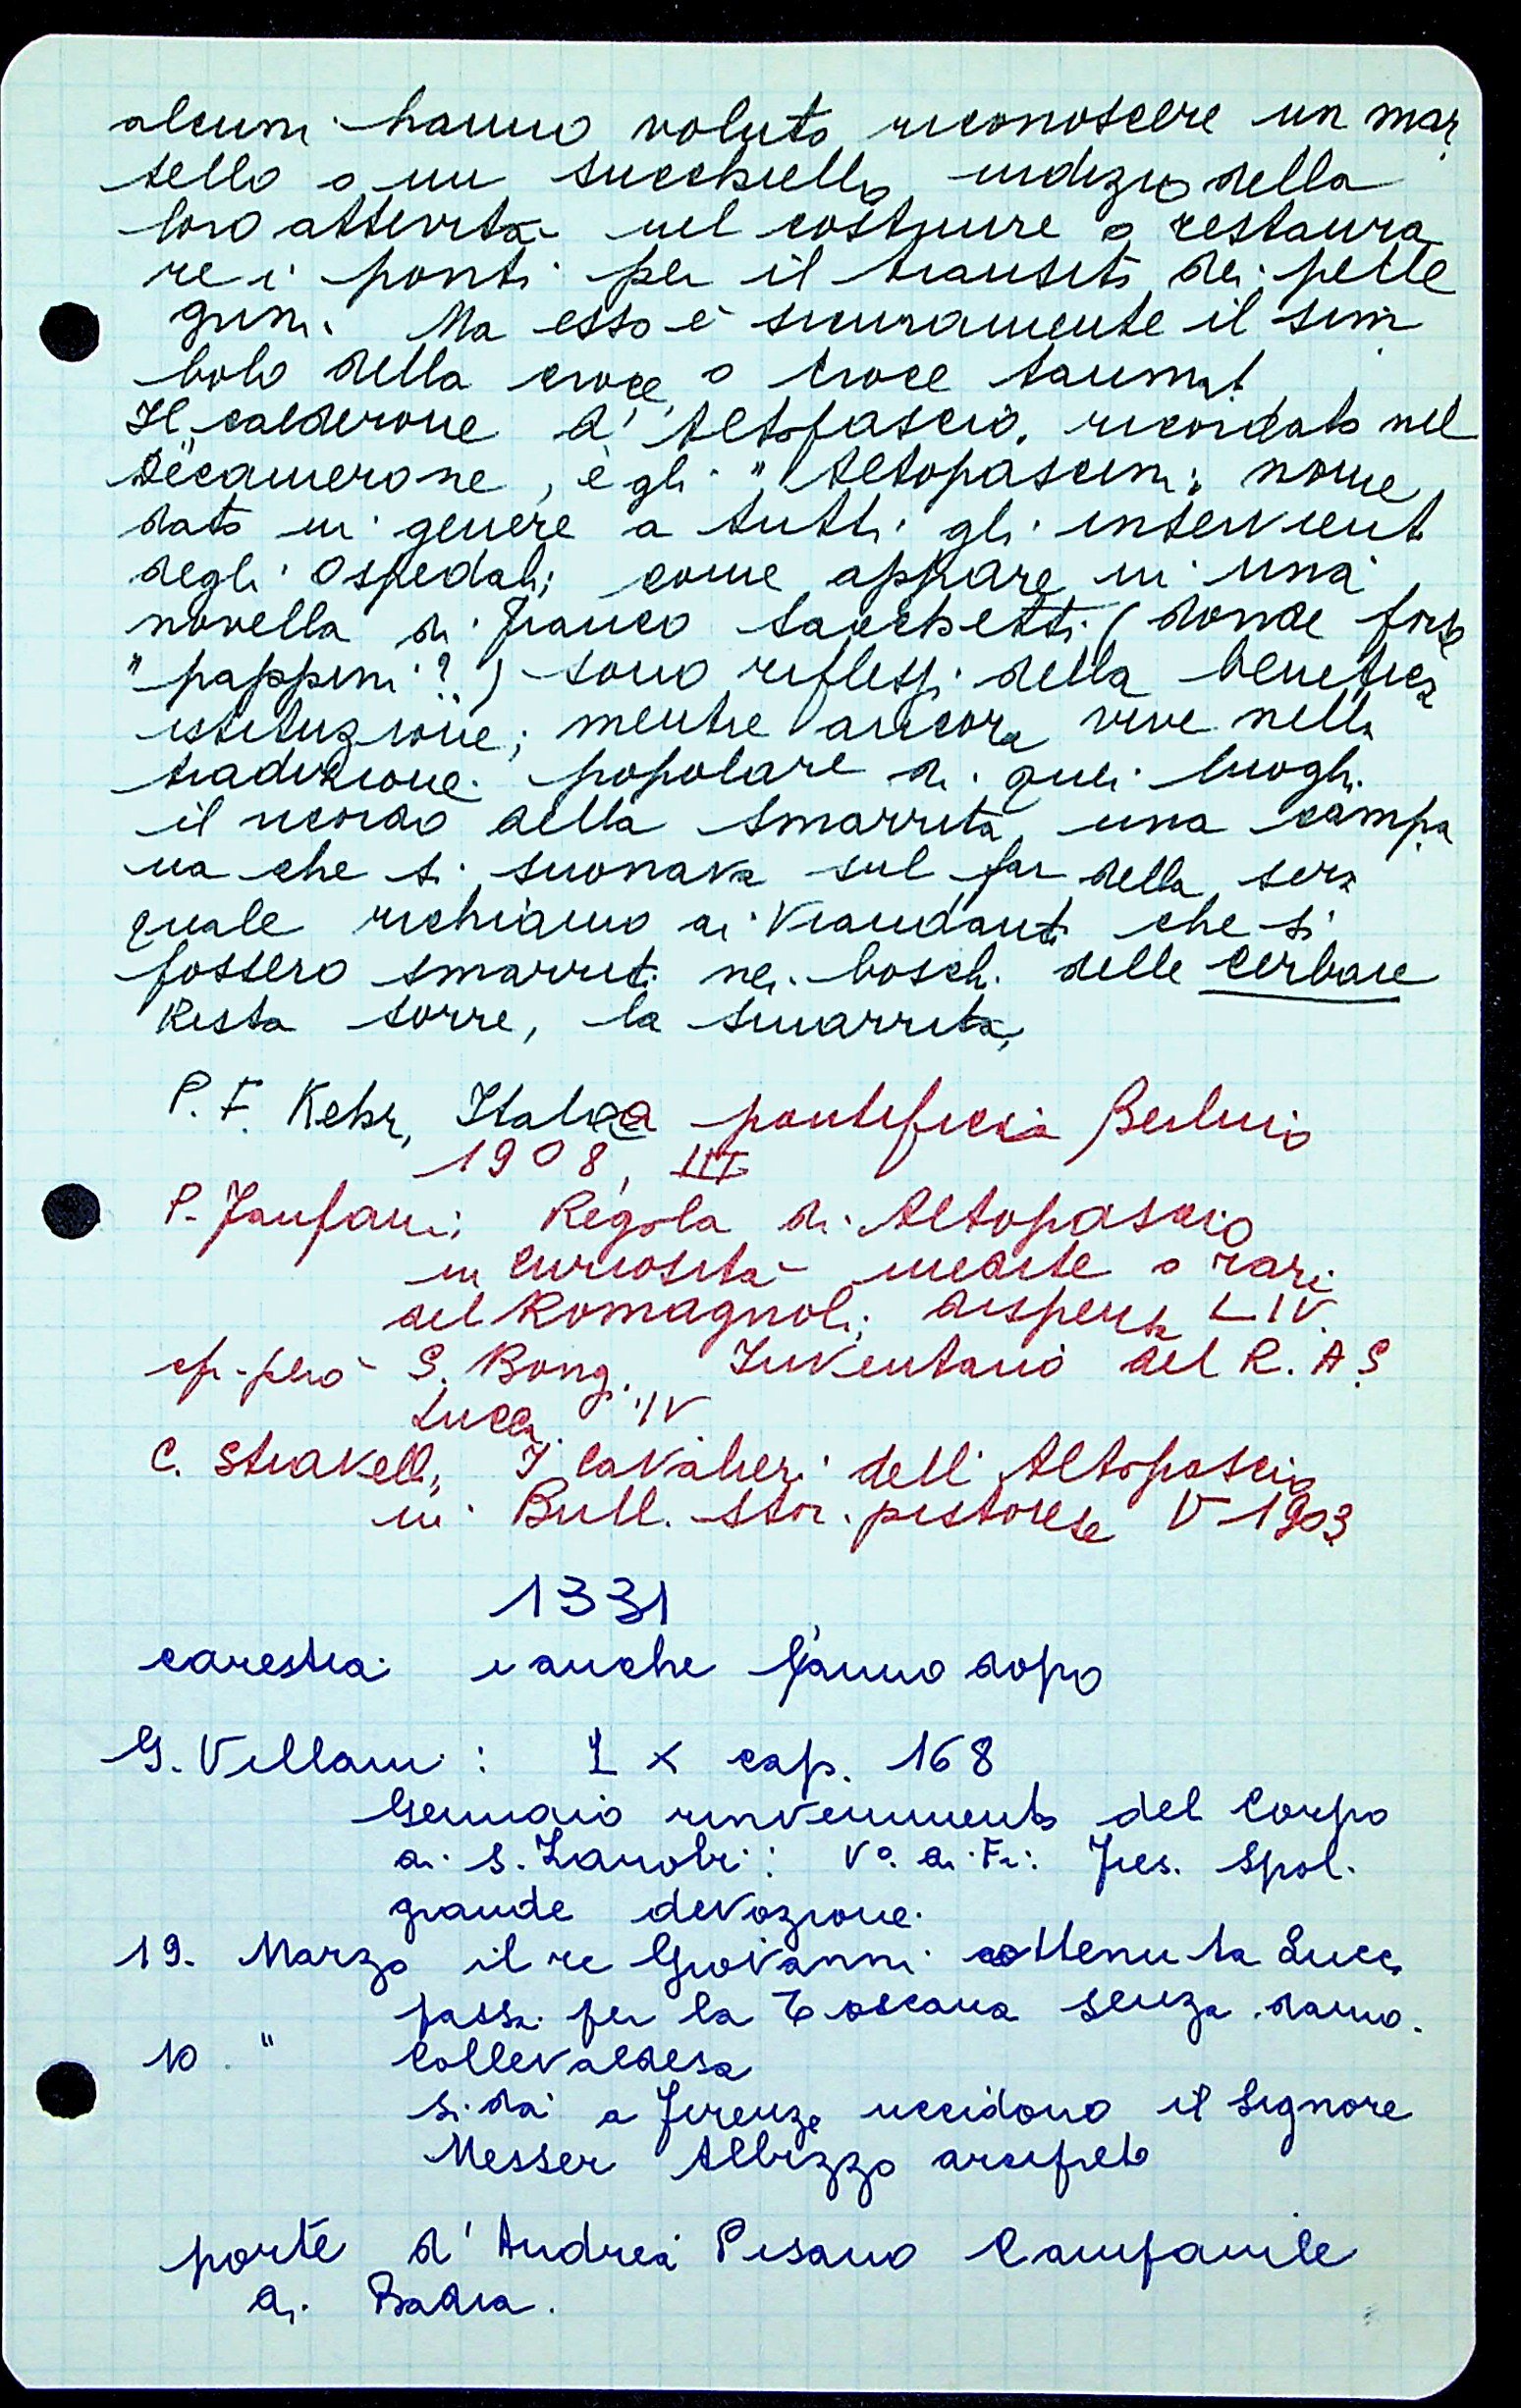 alcuni hanno voluto riconoscere un mar
tello o un succhiello indizio della
loro attività nel costruire o restaura
re i ponti per il transito dei pelle
grini. Ma esso è sicuramente il sim
bolo della croce, o croce taumat
Il "calderone d'Altopascio, ricordato nel
Decamerone, e gli "Altopascini; nome
dato in genere a tutti gli inservient
degli Ospedali; come appare in una
novella di Franco Sacchetti (donde forse
"pappini"?) sono riflessi della benefica
istituzione; mentre ancora vive nella
tradizione popolare di quei luoghi
il ricordo della smarrita, una campa
na che si suonava sul far della sera
quale richiamo ai Viandanti che si
fossero smarriti nei boschi delle Cerbaie
Resta torre, la smarrita,
P. F. Kehr, Italia pontificia Berlino
1908, III
P. Fanfani; Regola di Altopascio
in Curiosità inedite o rare
del Romagnoli; dispensa LIV.
cfr. però S. Bongi. Inventario del R. A S
Lucca. IV
C. Stiavelli, I Cavalieri dell'Altopascio
in Bull. stor. pistoiese V 1903
1331
carestia e anche l'anno dopo
G. Villani: L X cap. 168
Gennaio rinvenimento del Corpo
di S. Zanobi: Vº. di Fi: Fies. Spol.
grande devozione.
19. Marzo il re Giovanni ottenuta Lucca
passa per la Toscana senza danno.
10. " Collevaldesa
si dà a Firenze uccidono il Signore
Messer Albizzo arciprete
porte d'Andrea Pisano Campanile
di Badia.